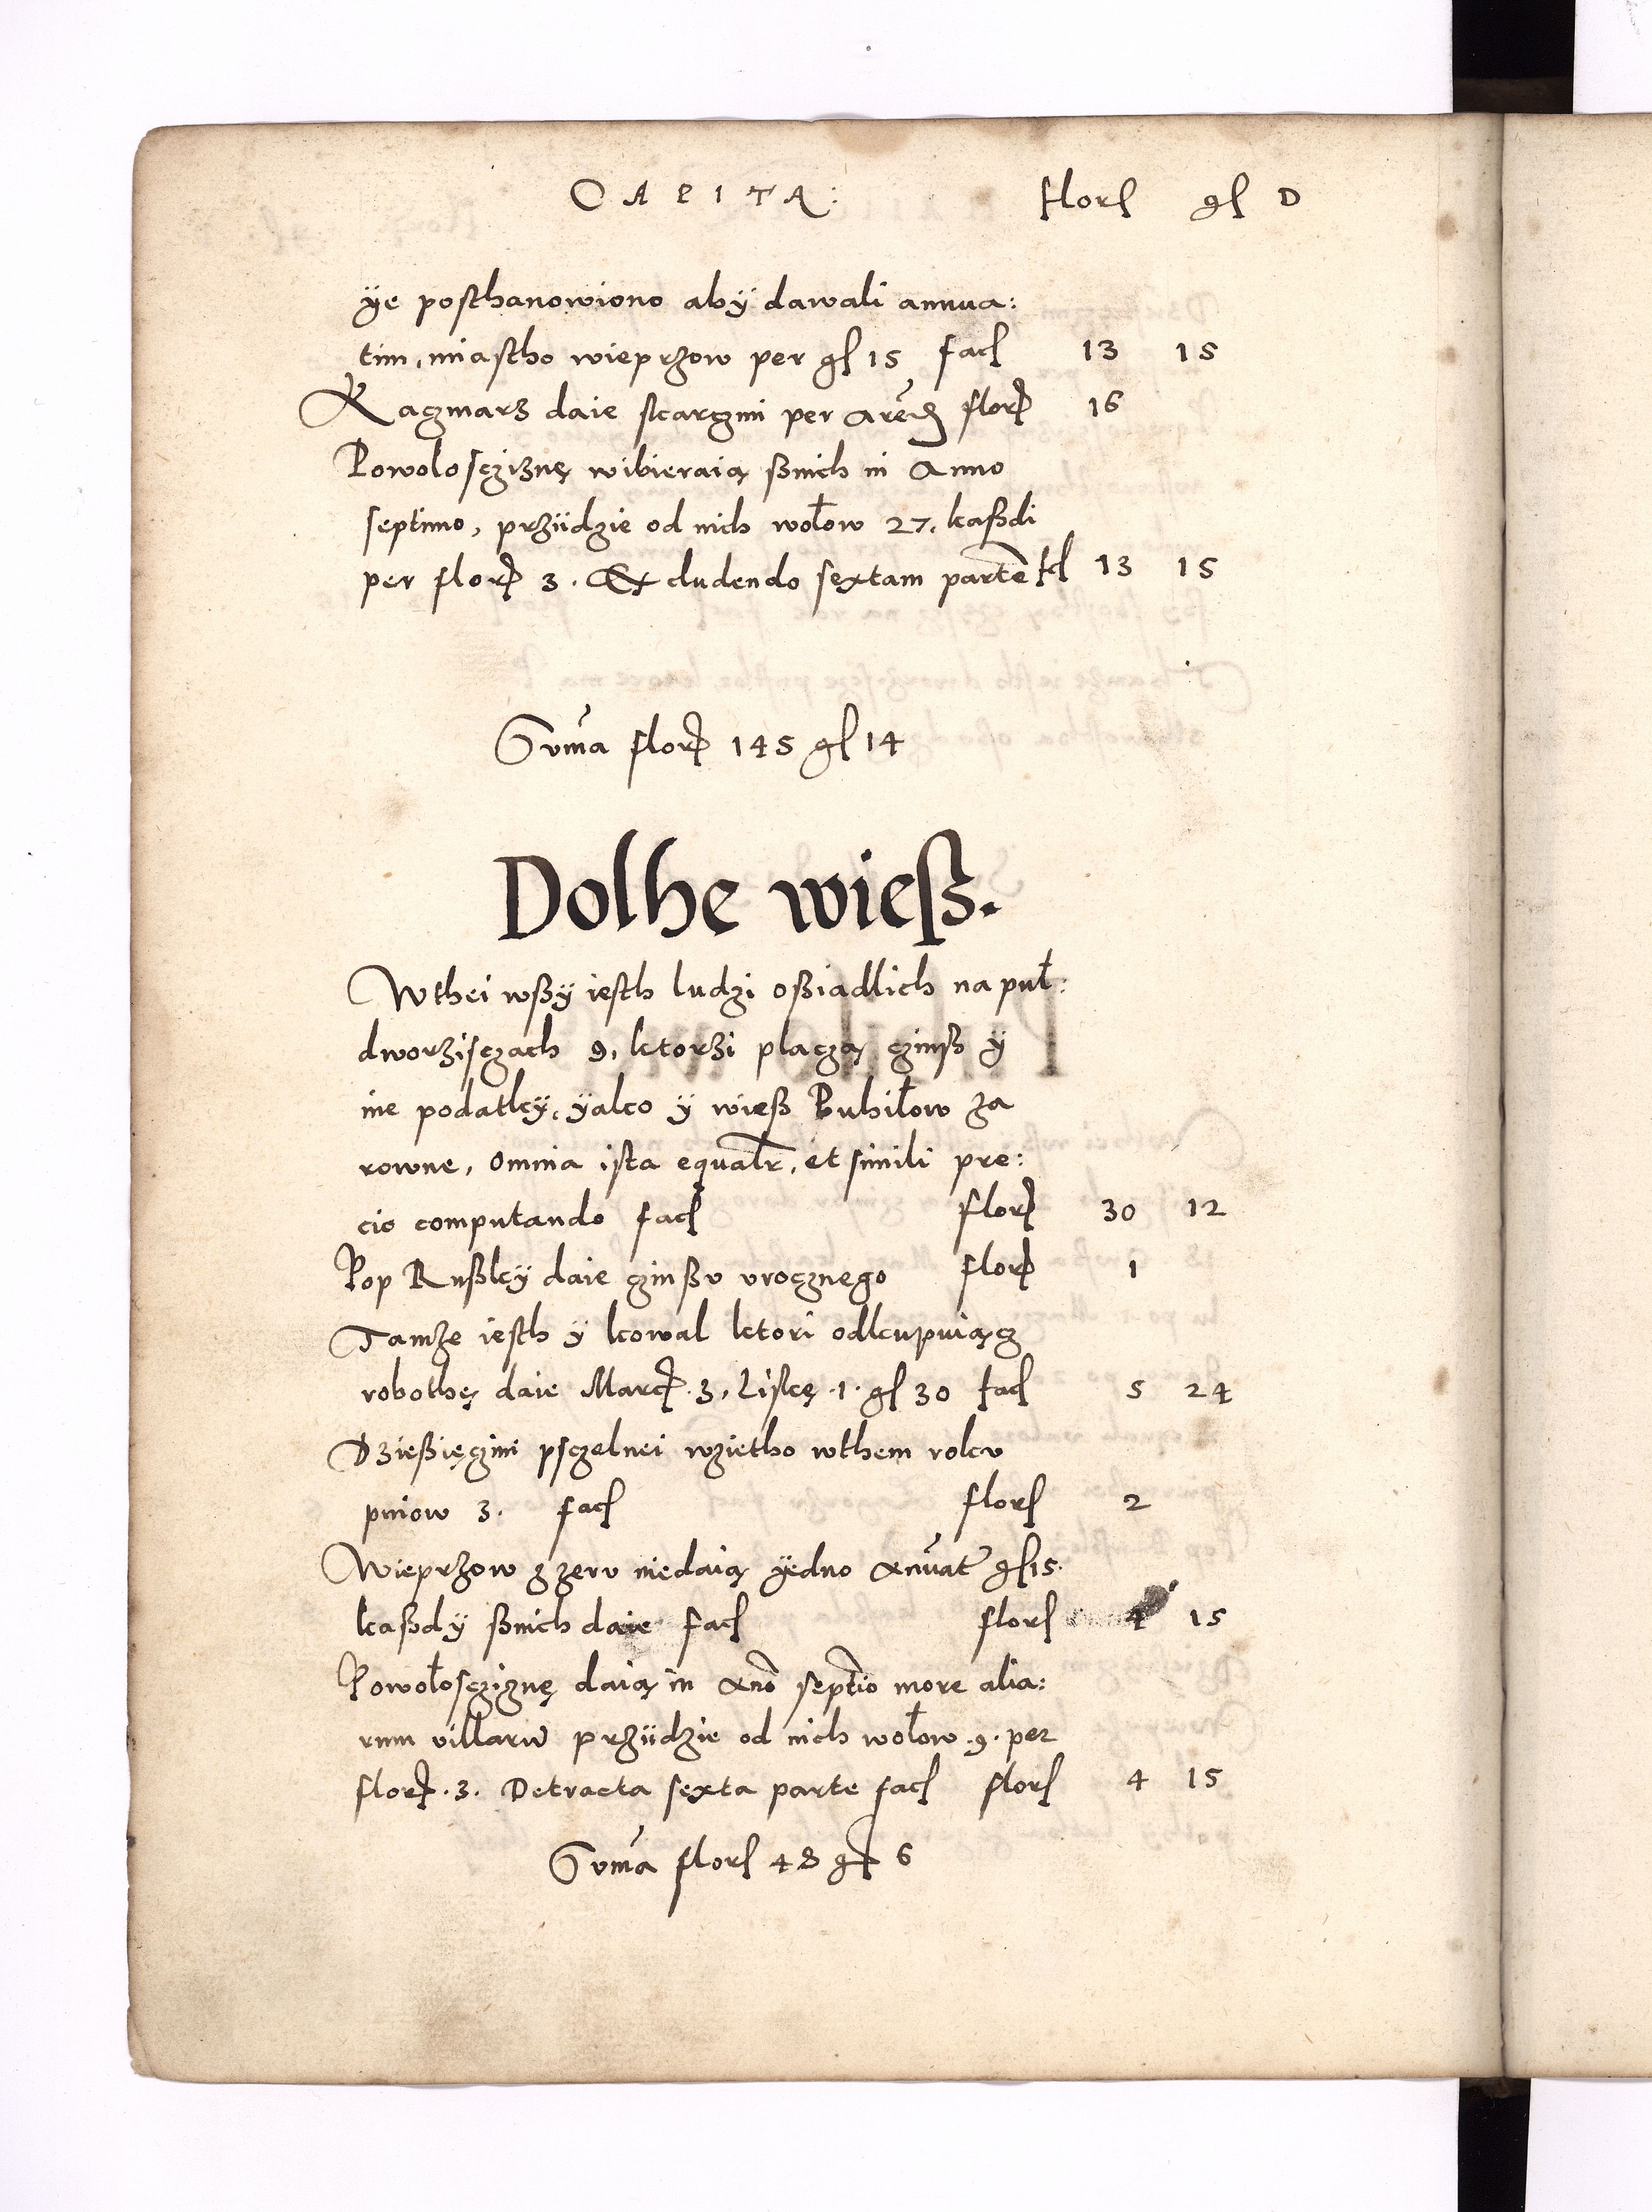 CAPITA: flor gr D
ÿe posthanowiono abÿ dawali annua:
tim, miastho wieprzow per gr 15 fac 13 15
Kaczmarz daie skarczmi per arēd flor 16
Powoloscziznę wibieraią ßnich in Anno
septimo, przÿdzie od nich wołow 27, kaßdi
per flor 3. Excludendo sextam partē fcl 13 15
Sūma flor 145 gr 14
Dolhe wieß.
Wthei wßÿ iesth ludzi oßiadlich na puł:
dworzisczach 9, ktorzi placzą czinß ÿ
ine podatkÿ, ÿako ÿ wieß Buhiłow za
rowne, omnia ista equalr, et simili pre:
cio computando fac flor 30 12
Pop Rußkÿ daie czinßu urocznego flor 1
Tamże iesth ÿ kowal ktori odkupuiącz
robothę daie Marc 3, Liskę 1 gr 30 fac 5 24
Dzießięczini psczelnei wzietho wthem roku
pniow 3. fac flor 2
Wieprzow z zeru niedaią ÿedno Anuat gr 15
kaßdÿ ßnich daie fac flor 4 15
Powołosczignę daią in Ano septio more alia:
rum villarū przÿdzie od nich wołow 9 per
flor 3. Detracta sexta parte fac flor 4 15
Sūma flor 48 gr 6